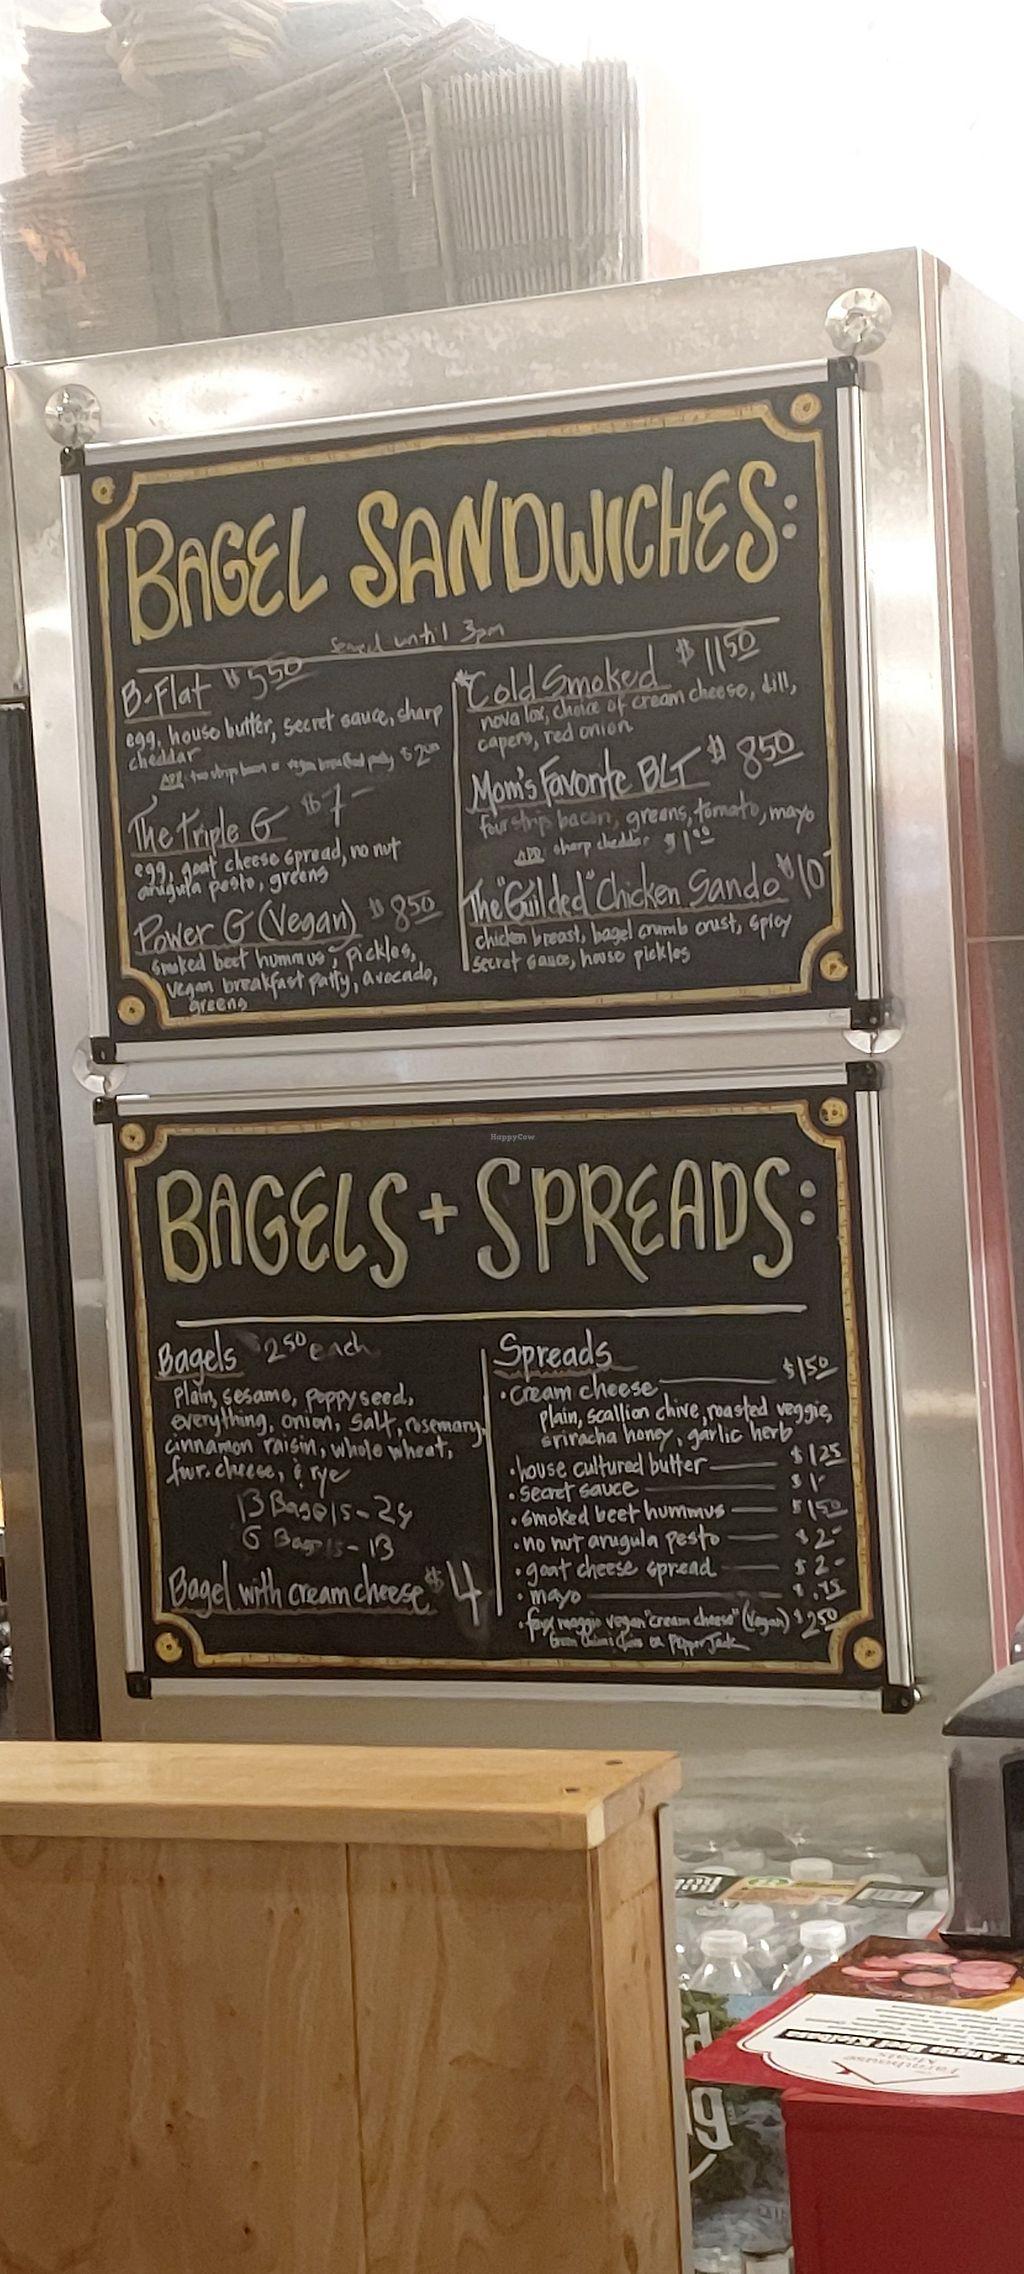 BAGEL SANDWICHES:
Served until 3pm
B-Flat $5.50
egg, house butter, secret sauce, sharp
cheddar
ADD: two strip bacon or vegan breakfast patty $2.00
The Triple G $7-
egg, goat cheese spread, no nut
arugula pesto, greens
Power G (Vegan) $8.50
smoked beet hummus, pickles,
vegan breakfast patty, avocado,
greens
*Cold Smoked $11.50
nova lox, choice of cream cheese, dill,
capers, red onion
Mom's Favorite BLT $8.50
four strip bacon, greens, tomato, mayo
ADD: sharp cheddar $1.00
The "Guilded" Chicken Sando $10-
chicken breast, bagel crumb crust, spicy
secret sauce, house pickles
HappyCow
BAGELS + SPREADS:
Bagels $2.50 each
plain, sesame, poppyseed,
everything, onion, salt, rosemary,
cinnamon raisin, whole wheat,
four cheese, & rye
13 Bagels - 24
6 Bagels - 13
Bagel with cream cheese $4
Spreads
• cream cheese $1.50
plain, scallion chive, roasted veggie,
sriracha honey, garlic herb
• house cultured butter $1.25
• secret sauce $1-
• smoked beet hummus $1.50
• no nut arugula pesto $2-
• goat cheese spread $2-
• mayo $.75
• faux maggio vegan "cream cheese" (Vegan) $2.50
or Pepper Jack
Farmhouse
Meats